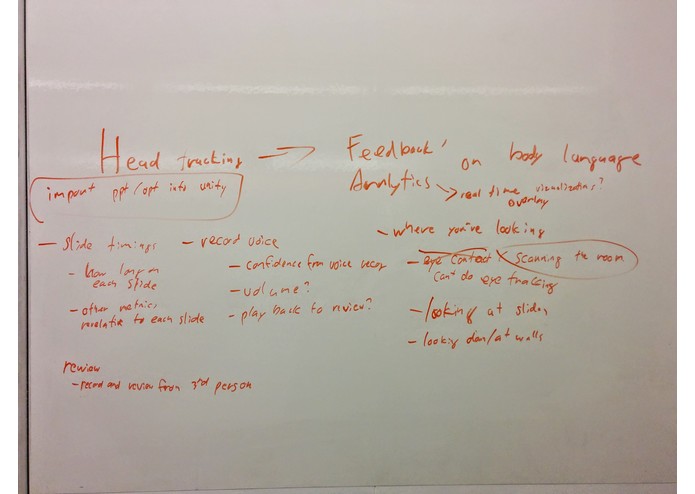 Head tracking → Feedback' on body language
Analytics → real time visualizations?
overlay
import ppt/opt into unity
- slide timings
- how long on
each slide
- other metrics
relative to each slide
- record voice
- confidence from voice recog
- volume?
- play back to review?
- where you're looking
- eye contact X scanning the room
can't do eye tracking
- looking at slides
- looking down/at walls
review
- record and review from 3rd person